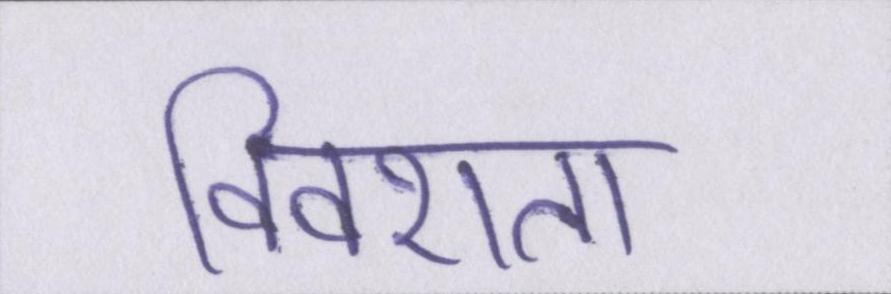 विवशता